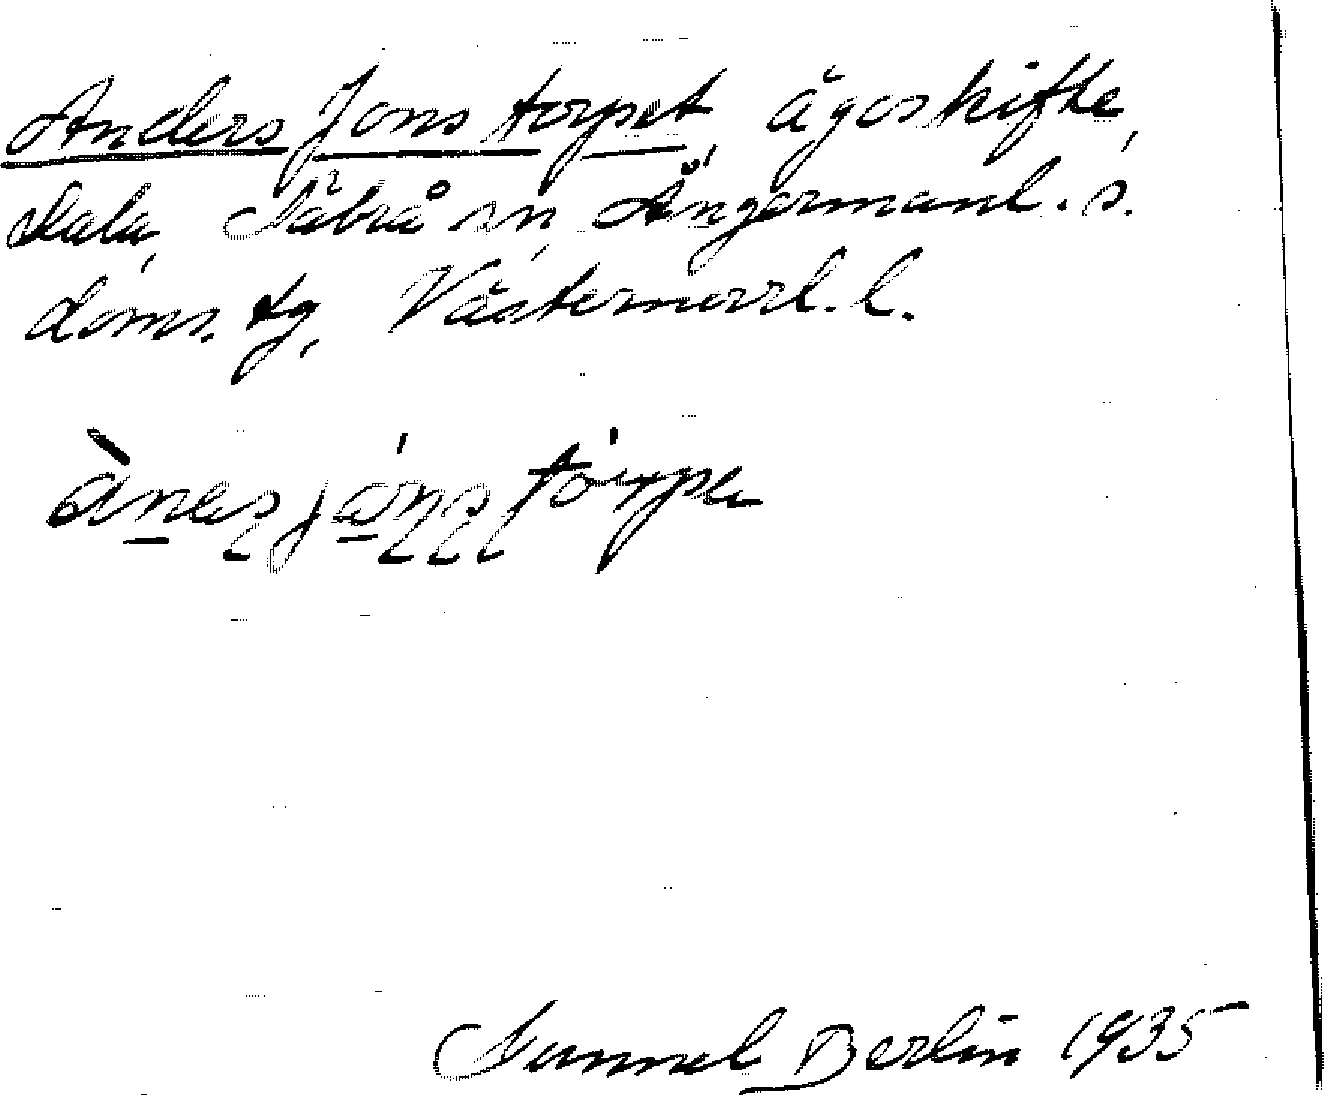 Anders Jons torpet, ägoskifte,
Dala, Säbrå sn, Ångermanl. s.
doms. tg, Västernorrl. l.
Gunnel Berlin 1935